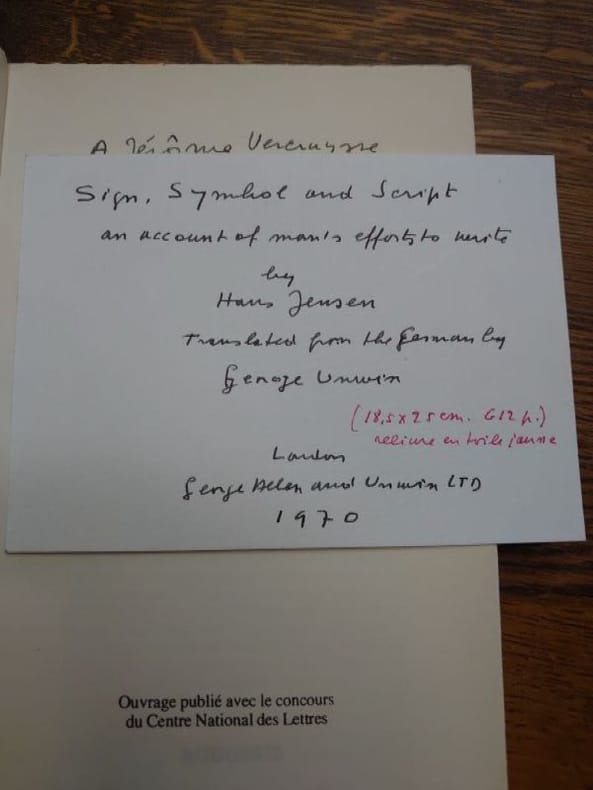 A Jérôme Vercruysse
Sign, Symbol and Script
an account of man's efforts to write
by
Hans Jensen
Translated from the German by
George Unwin
(18,5 x 25 cm. 612 p.)
reliure en toile jaune
London
George Allen and Unwin LTD
1970
Ouvrage publié avec le concours
du Centre National des Lettres